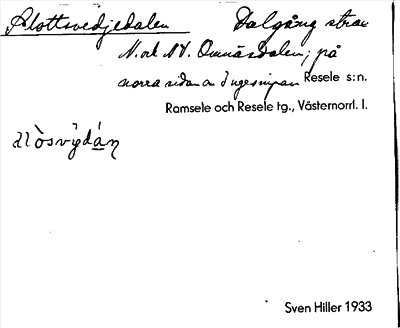 Slottsvedjedalen Dalgång strax
N. och NV. Omnäsdalen; på
norra sidan av Ingesmyran Resele s:n.
Ramsele och Resele tg., Västernorrl. l.
Sven Hiller 1933